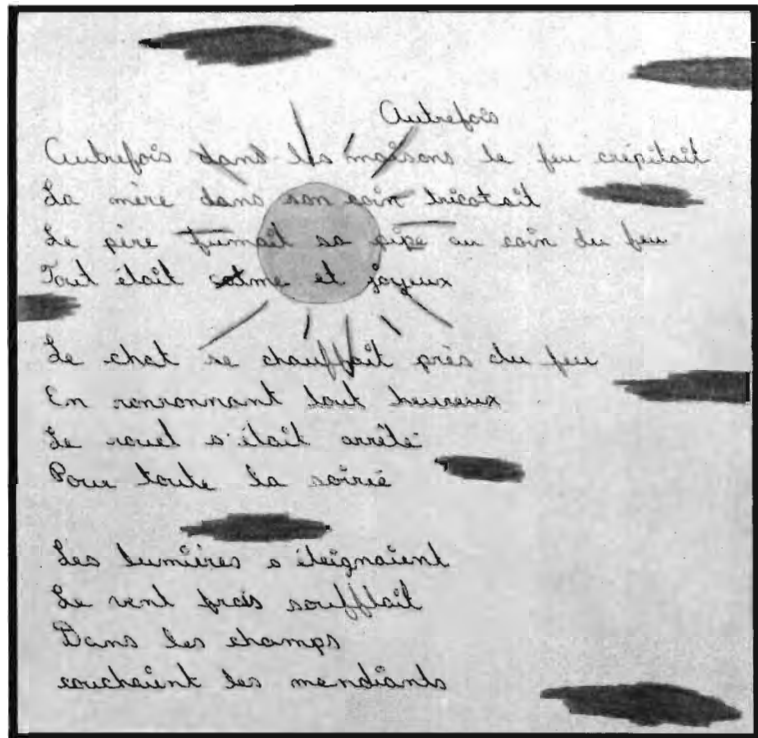 Autrefois
Autrefois dans les maisons le feu crépitait
La mère dans son coin tricotait
Le père fumait sa pipe au coin du feu
Tout était calme et joyeux
Le chat se chauffait près du feu
En ronronnant tout heureux
Le rouet s'était arrêté
Pour toute la soirée
Les lumières s'éteignaient
Le vent frais soufflait
Dans les champs
couchaient les mendiants